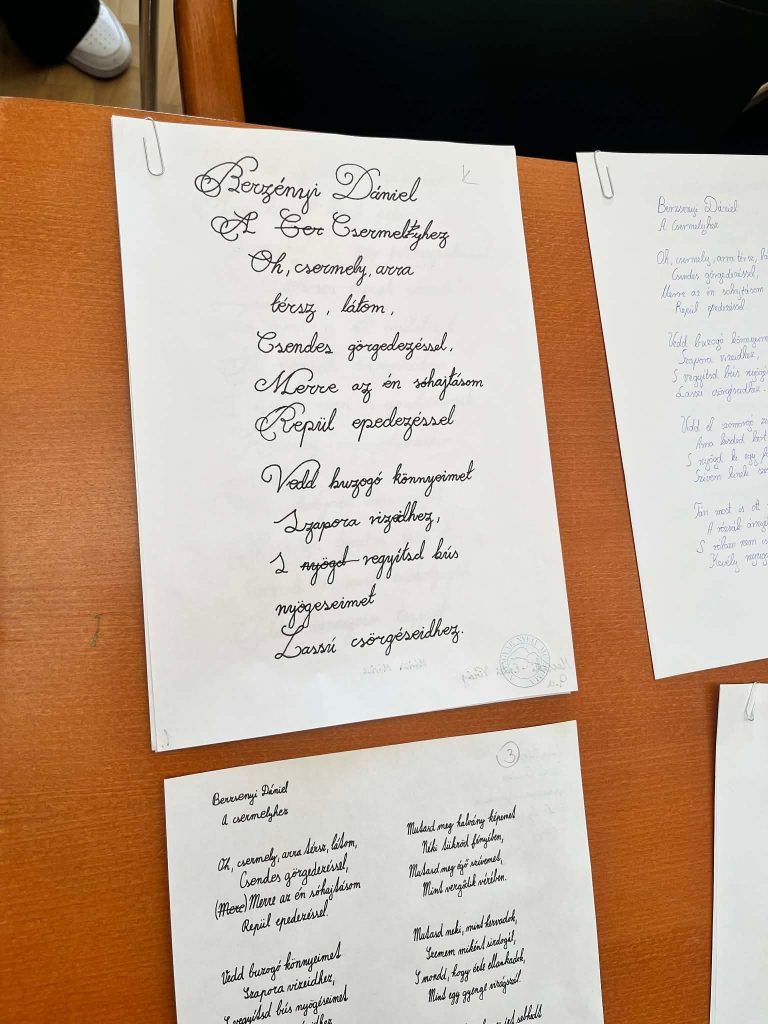 Berzényi Dániel
A Cer Csermeltyhez
Oh, csermely, arra
térsz, látom,
Csendes görgedezéssel,
Merre az én sóhajtásom
Repül epedezéssel
Vedd buzogó könnyeimet
Szapora vizedhez,
S nyögd vegyítsd bús
nyögeseimet
Lassú csörgéseidhez.
Berzsenyi Dániel
A Csermelyhez
Oh, csermely, arra térsz,
Csendes görgedezéssel,
Merre az én sóhajtásom
Repül epedezéssel.
Vedd buzogó
Szapora vizeidhez,
S vegyítsd bús
Lassú csörgéseidhez.
Vedd el
S nyögd ki egy
Tán most is ott
A rózsák
3
Berzsenyi Dániel
A csermelyhez
Oh, csermely, arra térsz, látom,
Csendes görgedezéssel,
(Mere) Merre az én sóhajtásom
Repül epedezéssel.
Vedd buzogó könnyeimet
Szapora vizeidhez,
S vegyítsd bús nyögéseimet
Mutasd meg halvány képemet
Néki tükröd fényiben,
Mutasd meg égő szívemet,
Mint vergődik vérében.
Mutasd neki, mint hervadok,
Szemem miként sirdogál,
S mondd, hogy érte ellankadok,
Mint egy gyenge virágszál.